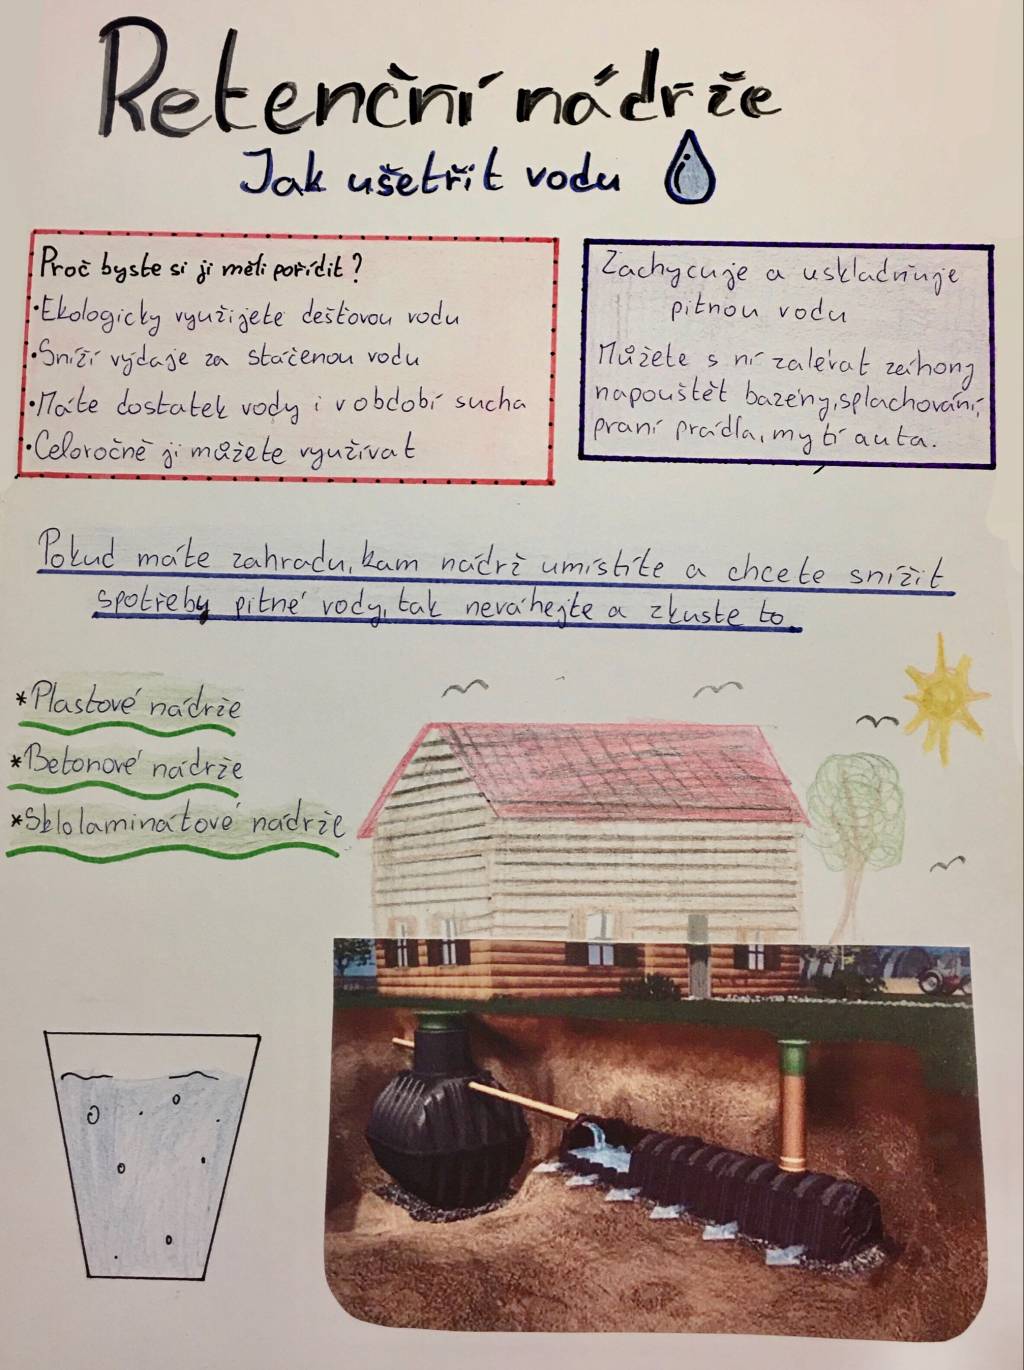 Retenční nádrže
Jak ušetřit vodu
Proč byste si ji měli pořídit?
•Ekologicky využijete dešťovou vodu
•Sníží výdaje za stáčenou vodu
•Máte dostatek vody i v období sucha
•Celoročně ji můžete využívat
Zachycuje a uskladňuje
pitnou vodu
Můžete s ní zalévat záhony
napouštět bazény, splachování,
praní prádla, mytí auta.
Pokud máte zahradu, kam nádrž umístíte a chcete snížit
spotřeby pitné vody, tak neváhejte a zkuste to.
*Plastové nádrže
*Betonové nádrže
*Sklolaminátové nádrže